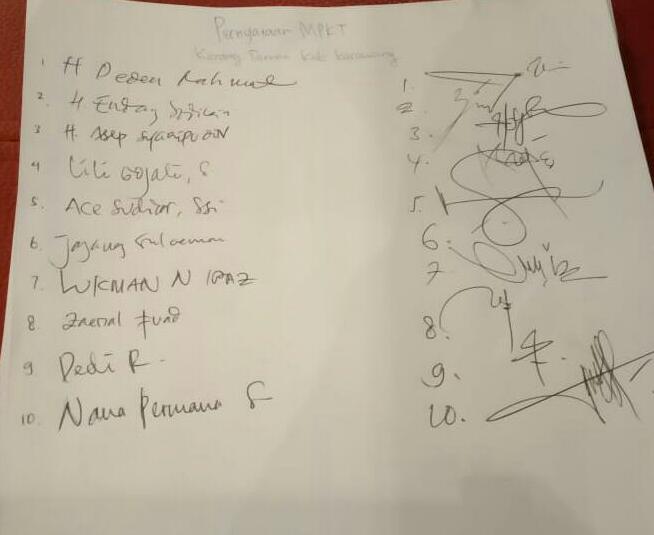 Pernyataan MPKT
Karang Taruna Kab Karawang
1 H Deden Rahmat
2. H. Endang Sodikin
3 H. Asep SyARIPUDIN
4 Lili Gojali, S
5. Ace Sudiar, SSi
6. Jajang Sulaeman
7. LUKMAN N IRAZ
8. Zaenal Fuad
9 Dedi R.
10. Nana Permana S
1.
2.
3.
4.
5.
6.
7
8.
9.
10.